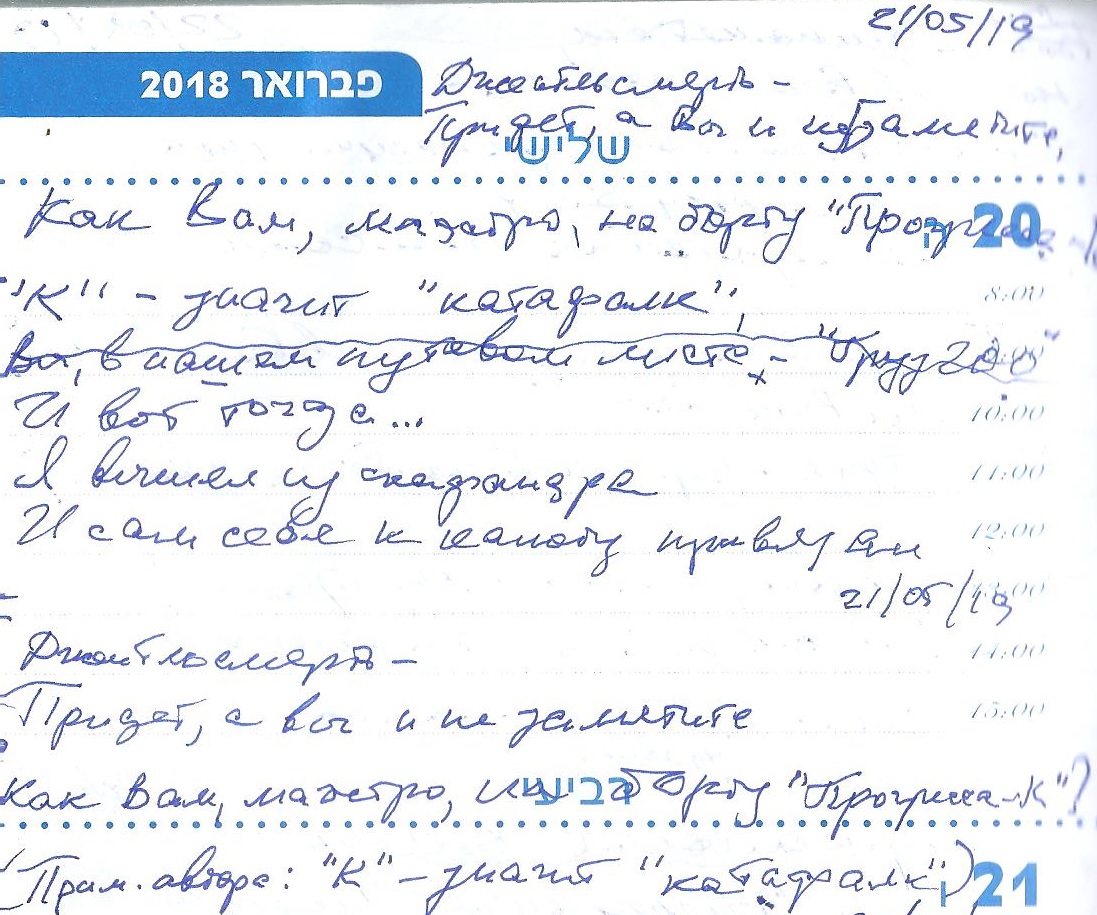 21/05/19
פברואר 2018
Джентльсмерть -
Придет, а вы и не заметите,
שלישי
Как Вам, маэстро, на борту "Прогресса
20
ה
"К" - значит "катафалк",
8:00
Вы, в нашем путевом листе, - "Груз 200"
И вот тогда...
10:00
Я вышел из скафандра
11:00
И сам себя к канату привязал
12:00
21/05/19
Джентльсмерть -
14:00
Придет, а вы и не заметите
15:00
Как Вам, маэстро, на борту "Прогресса-К"?
רביעי
(Прим. автора: "К" - значит "катафалк"),
21